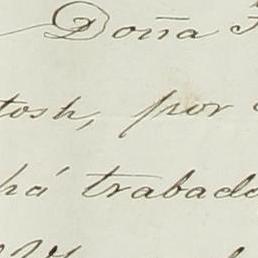 Doña
tosh, por
há trabado